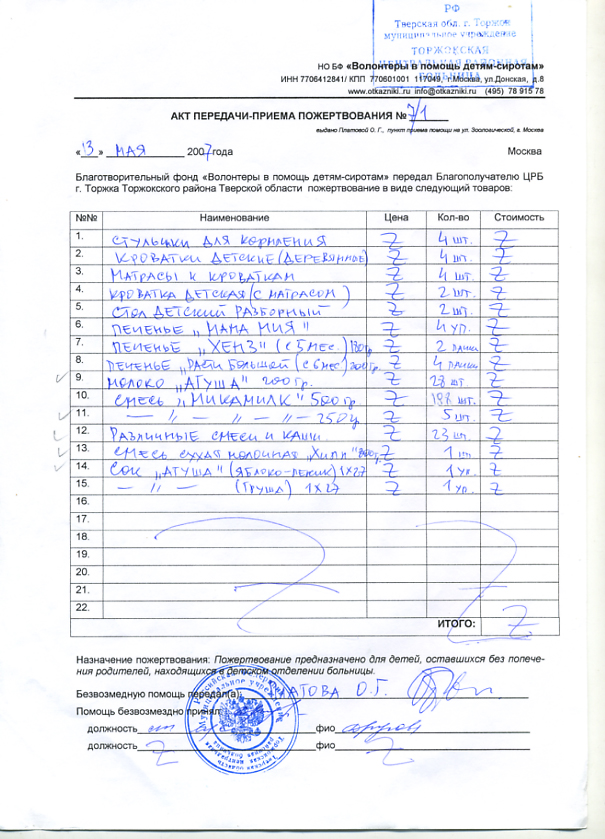 РФ
Тверская обл. г. Торжок
муниципальное учреждение
ТОРЖОКСКАЯ
ЦЕНТРАЛЬНАЯ РАЙОННАЯ
БОЛЬНИЦА
НО БФ «Волонтеры в помощь детям-сиротам»
ИНН 7706412841/ КПП 770601001 117049, г.Москва, ул.Донская, д.8
www.otkazniki.ru info@otkazniki.ru (495) 78 915 78
АКТ ПЕРЕДАЧИ-ПРИЕМА ПОЖЕРТВОВАНИЯ № 7/1
выдано Платовой О. Г., пункт приема помощи на ул. Зоологической, г. Москва
«13» МАЯ 2007года Москва
Благотворительный фонд «Волонтеры в помощь детям-сиротам» передал Благополучателю ЦРБ
г. Торжка Торжокского района Тверской области пожертвование в виде следующий товаров:
№№ Наименование Цена Кол-во Стоимость
1. СТУЛЬЧИКИ ДЛЯ КОРМЛЕНИЯ Z 4 шт. Z
2. КРОВАТКИ ДЕТСКИЕ (ДЕРЕВЯННЫЕ) Z 4 шт. Z
3. МАТРАСЫ К КРОВАТКАМ Z 4 шт. Z
4. КРОВАТКА ДЕТСКАЯ (С МАТРАСОМ) Z 2 шт. Z
5. СТОЛ ДЕТСКИЙ РАЗБОРНЫЙ Z 2 шт. Z
6. ПЕЧЕНЬЕ „МАМА МИЯ" Z 4 уп. Z
7. ПЕЧЕНЬЕ „ХЕНЗ" (с 5 мес.) 180гр Z 2 пачки Z
8. ПЕЧЕНЬЕ „РАСТИ БОЛЬШОЙ" (с 6 мес) 200гр. Z 4 пачки Z
9. МОЛОКО „АГУША" 200гр. Z 28 шт. Z
10. СМЕСЬ „МИКАМИЛК" 500гр. Z 188 шт. Z
11. — // — // — // — 250 Z 5 шт. Z
12. РАЗЛИЧНЫЕ СМЕСИ И КАШИ. Z 23 шт. Z
13. СМЕСЬ СУХАЯ МОЛОЧНАЯ „ХИПП" Z 1 шт Z
14. СОК „АГУША" 1x27 Z 1 уп. Z
15. — // — (ГРУША) 1x27 Z 1 уп. Z
16.
17.
18.
19.
20.
21.
22.
ИТОГО: Z
Назначение пожертвования: Пожертвование предназначено для детей, оставшихся без попече-
ния родителей, находящихся в детском отделении больницы.
Безвозмездную помощь передал(а): О.Г.
Помощь безвозмездно принял
должность фио
должность Z фио Z